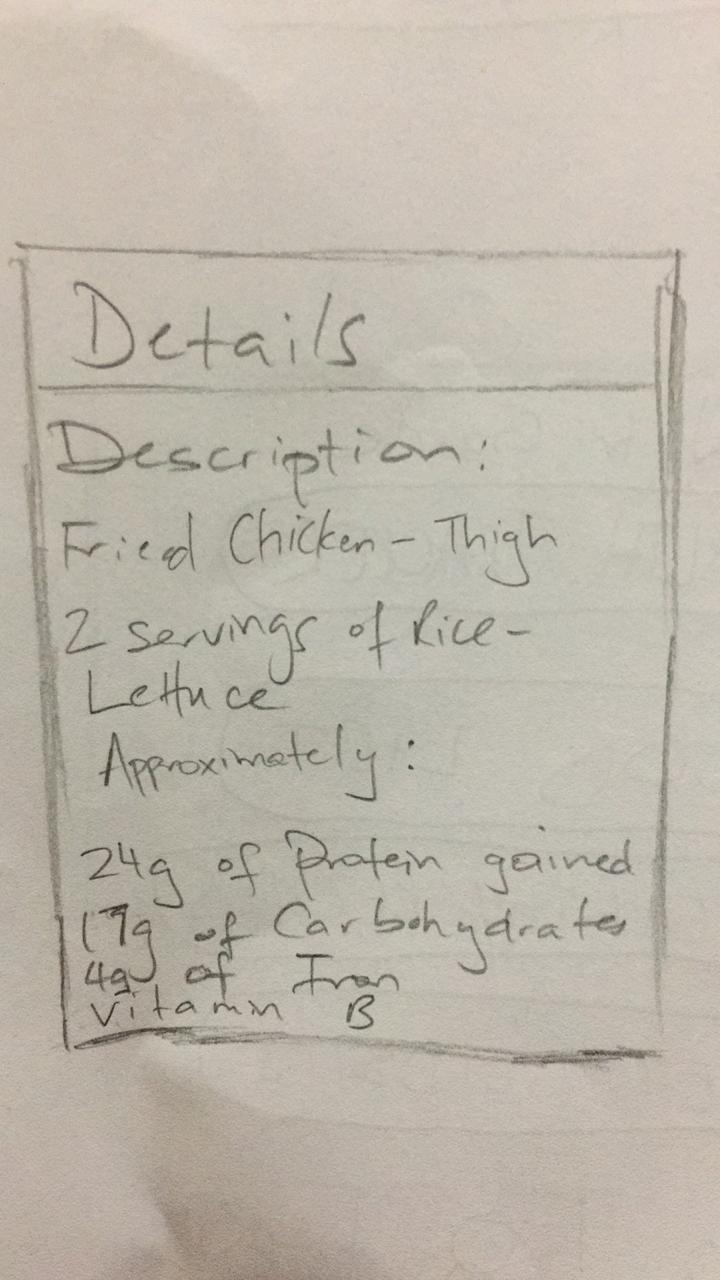 Details
Description:
Fried Chicken - Thigh
2 servings of Rice -
Lettuce
Approximately:
24g of Protein gained
17g of Carbohydrates
4g of Iron
Vitamin B